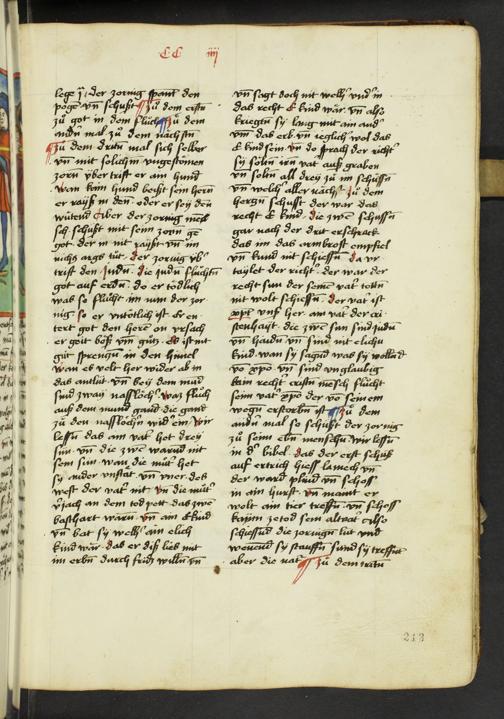 CC iiij
lege ÿ der zornig spant den
poge vn̄ schust zu dem erstn
zu got in dem flůchn zu dem
andn mal zu dem nächstn
zu dem dritn mal sich selber
vn̄ mit solichm vngestömen
zorn vbertrift er ain hund
wan kain hund beist sein hern
er raiß in den oder er sey den
wütend aber der zornig mesch
sch schust mit seinem zorn gē
got der in nit raÿst vn̄ im
nichs args tůt der zornig vb
trift den Judn die judn fluchtn
got auf erdn do er tödlich
was so flůcht im nun der zor
nig so er vntötlich ist Er en
tert got den heren on vrsach
er geit böß vm̄ gůtz Es ist nit
gůt sprengn in den himel
wan es velt her wider ab in
das antlüt vn̄ bey dem mund
sind zway naßlöch was flůch
auß dem mund gand die gand
zu den naßlöchn wid ein wir
lessn das ain vat het drey
sün vn̄ die zwē warnd nit
sein sün wan die můt het
sy ander vnstat vn̄ vner des
west der vat nit vn̄ die můt
verjach an dem todpett das zwē
basthart wärn vn̄ ain Ekind
vn̄ bat sy welhs ain elich
kind wär das er diß ließ mit
im erbn durch frids willn vn̄
vn̄ sagt doch nit welhs vnd in
das recht E kind wär vn̄ also
kriegtn sy lang mit ain and
vm̄ das erb vn̄ ieglich wol das
E kind sein vn̄ do sprach der richt
sy soltn irn vat auß graben
vn̄ soltn all drey zu im schüssn
vn̄ welhs aller nächst zu dem
hertzn schusst der war das
recht E kind die zwē schussn
gar nach der drit erschrack
das im das armbrost empfiel
vn̄ kund nit schiessn da vr
taÿlet der richt der wär der
recht sun der seinē vat tottn
nit wolt schiessn der vat ist
xpus vnß her ain vat der cri
stenhayt die zwē sün sind judn
vn̄ haidn vn̄ sind nit elichu
kind wan sy sagnd was sy wollnd
vō xpo vn̄ sind vnglaubig
kain recht cristn mesch flucht
seim vat xpo der vō seinem
wegn erstorbn ist zu dem
andn mal so schust der zornig
zu seim ebn menschn wir lessn
in d bibel das der erst schutz
auf ertrich hiess lamech vn̄
der ward plind vn̄ schoss
in ain hurst vn̄ maint er
wolt ain tier treffn vn̄ schoss
kayin zetod sein altvat also
schiessnd die zornign lüt vnd
wenend sy straffn sünd sy treffnt
aber die nat zu dem dritn
212